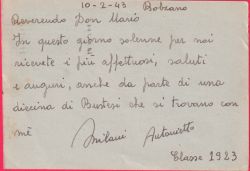 10-2-43 Bolzano
Reverendo Don Mario
In questo giorno solenne per noi
ricevete i più affettuosi, saluti
e auguri, anche da parte di una
diecina di Bustesi che si trovano con
mè
Milani Antonietto
Classe 1923